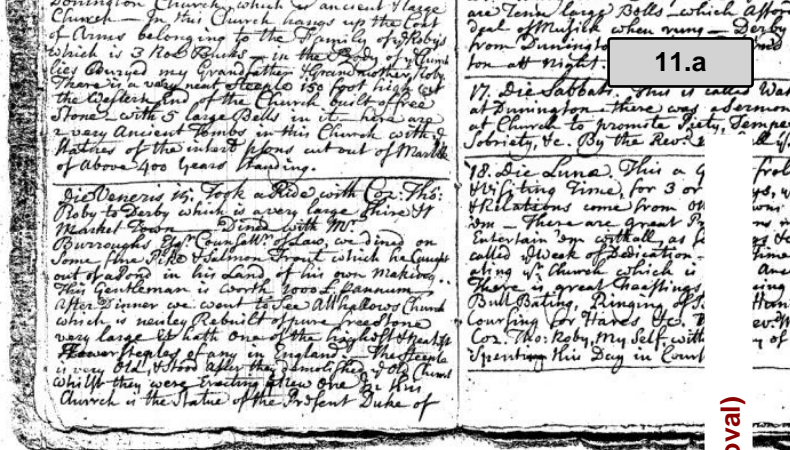 Donington Church, which is ancient & large
Church — In this Church hangs up the Coat
of Arms belonging to the Family of ye Robys
which is 3 Roe Bucks — in the Body of ye Church
lies Buryed my Grandfather & Grandmother, Roby
There is a very neat Steeple 150 foot high att
the Western End of the Church built of free
Stone with 5 large Bells in it — here are
2 very Ancient Tombs in this Church with ye
Statues of the interd psons cut out of Marble
of Above 400 years Standing.
Die Veneris 15. Took a Ride with Coz: Tho:
Roby to Derby which is a very large Shire &
Market Town — Dined with Mr
Burroughs Esqr Counsellr of Law, we dined on
Some fine Pike & Salmon Trout which he Caught
out of a Pond in his Land of his own making
This Gentleman is worth 2000 £ pannum
After Dinner we went to See Allhallows Church
which is newley Rebuilt of pure freestone
very large it hath One of the highest & neatest
Steeples of any in England — The Steeple
is very Old, & Stood after they demolished ye Old Church
whilst they were Erecting a New One In this
Church is the Statue of the Present Duke of
are Tenn large Bells — which affor
deal of Musick when rung — Derby
from Dunington
ton att night.
11.a
17. Die Sabbati. This is called Wa
at Dunington — there was a Sermon
at Church to promote Piety, Tempe
Sobriety, &c. By the Rev:
18. Die Luna. This a
& Visiting Time, for 3 or
& Relations come from
'em — There are great
Entertain 'em withall, as
called ye Week of Dedication
ating ye Church which is
There is great Feastings
Bull Bating, Ringing of
Coursing for Hares &c.
Coz. Tho: Roby, My Self with
Spenting this Day in Court
oval)